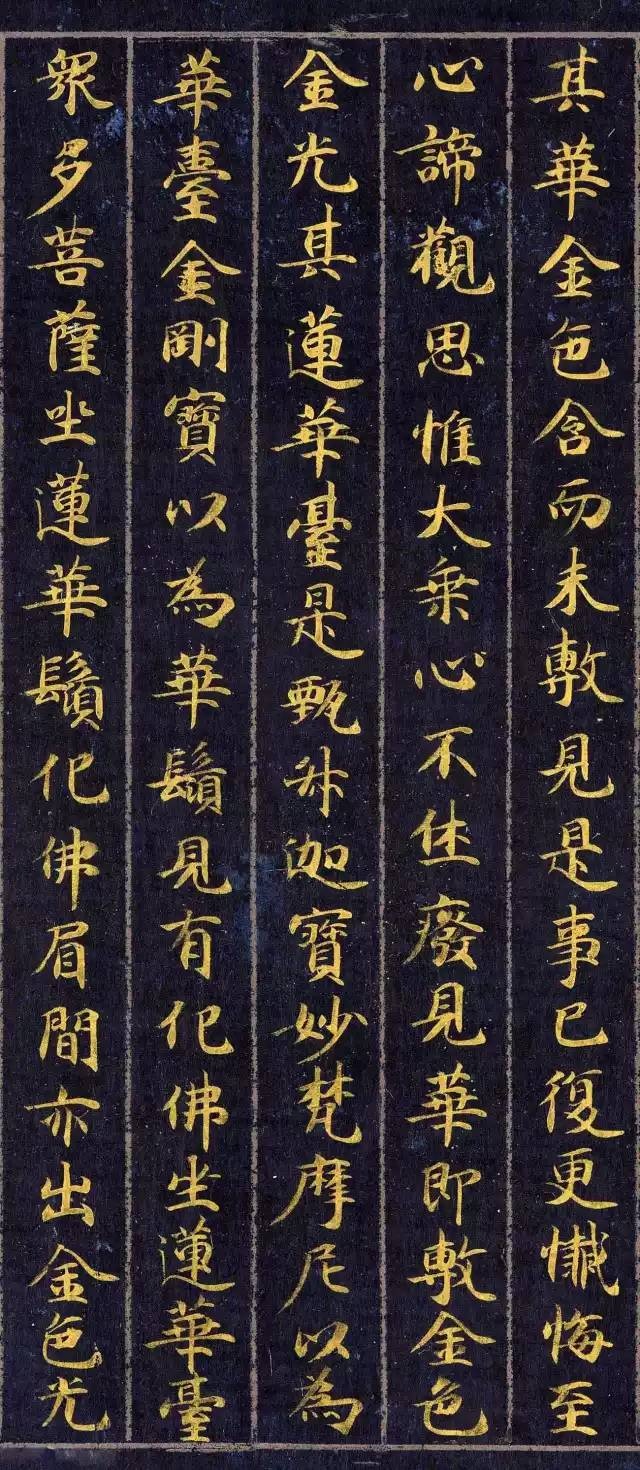 其華金色含而未敷見是事已復更懺悔至
心諦觀思惟大乗心不休廢見華即敷金色
金光其蓮華臺是甄叔伽寶妙梵摩尼以為
華臺金剛寶以為華鬚見有化佛坐蓮華臺
衆多菩薩坐蓮華鬚化佛眉間亦出金色光